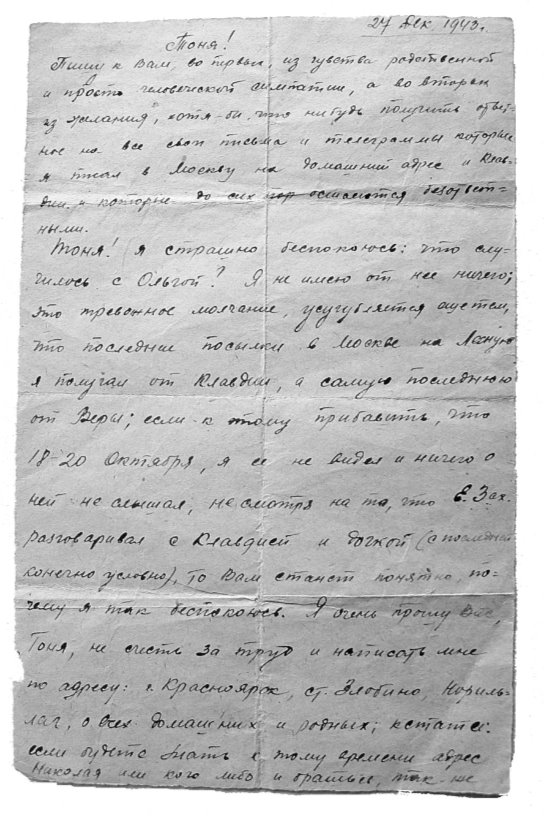 27 Дек. 1943 г.
Тоня!
Пишу к Вам, во первых, из чувства родственной
и просто человеческой симпатии, а во вторых
из желания, хотя-бы, что нибудь получить ответ-
ное на все свои письма и телеграммы которые
я писал в Москву на домашний адрес и Клав-
дии и которые до сих пор остаются безответ-
ными.
Тоня! я страшно беспокоюсь: что слу-
чилось с Ольгой? Я не имею от нее ничего;
это тревожное молчание, усугубляется еще тем,
что последние посылки в Москве на Лесную
я получал от Клавдии, а самую последнюю
от Веры; если к этому прибавить, что
18-20 Октября, я ее не видел и ничего о
ней не слышал, не смотря на то, что Е. Зах.
разговаривал с Клавдией и дочкой (с последней
конечно условно), то Вам станет понятно, по-
чему я так беспокоюсь. Я очень прошу Вас,
Тоня, не счесть за труд и написать мне
по адресу: г. Красноярск, ст. Злобино, Нориль-
лаг, о всех домашних и родных; кстати:
если будете знать к тому времени адрес
Николая или кого либо и братьев, так-же